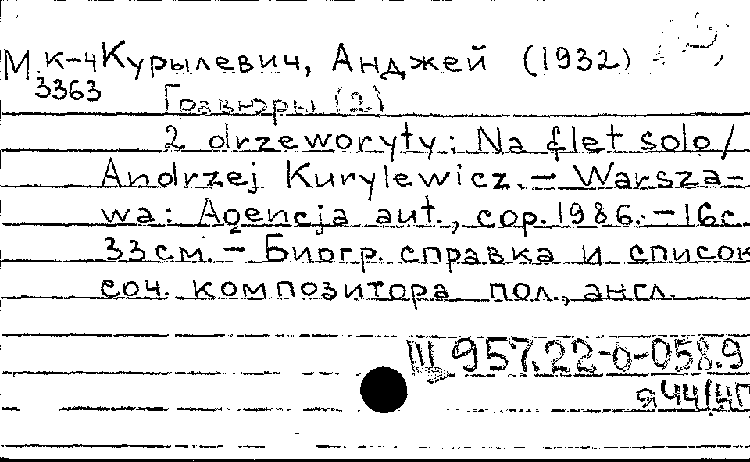 М.к-ч Курылевич, Анджей (1932)
3363
Гравюры (2)
2 drzeworyty: Na flet solo /
Andrzej Kurylewicz. – Warsza-
wa: Agencja aut., cop. 1986. – 16 с.
33 см. – Биогр. справка и список
соч. композитора пол., англ.
Щ 957.22-0-058.9
я44/4П